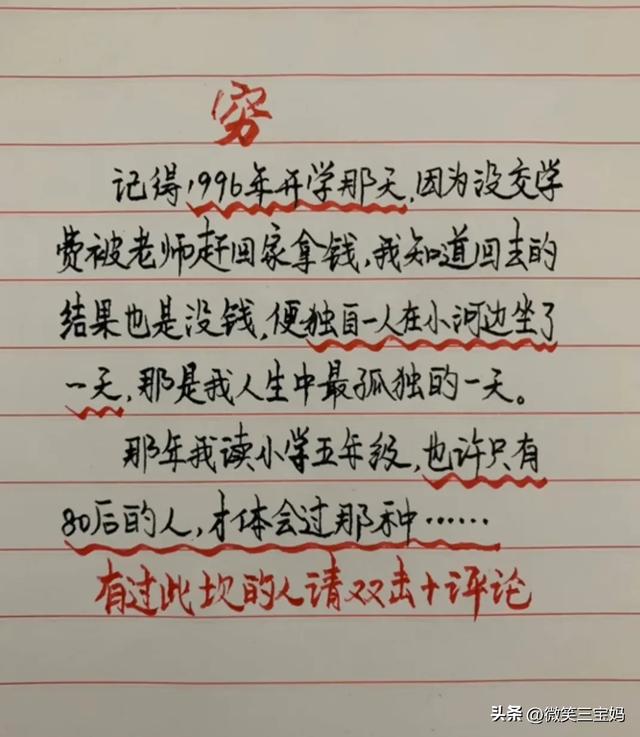 穷
记得1996年开学那天,因为没交学
费被老师赶回家拿钱,我知道回去的
结果也是没钱,便独自一人在小河边坐了
一天,那是我人生中最孤独的一天。
那年我读小学五年级,也许只有
80后的人,才体会过那种……
有过此坎的人请双击+评论
头条 @微笑三宝妈